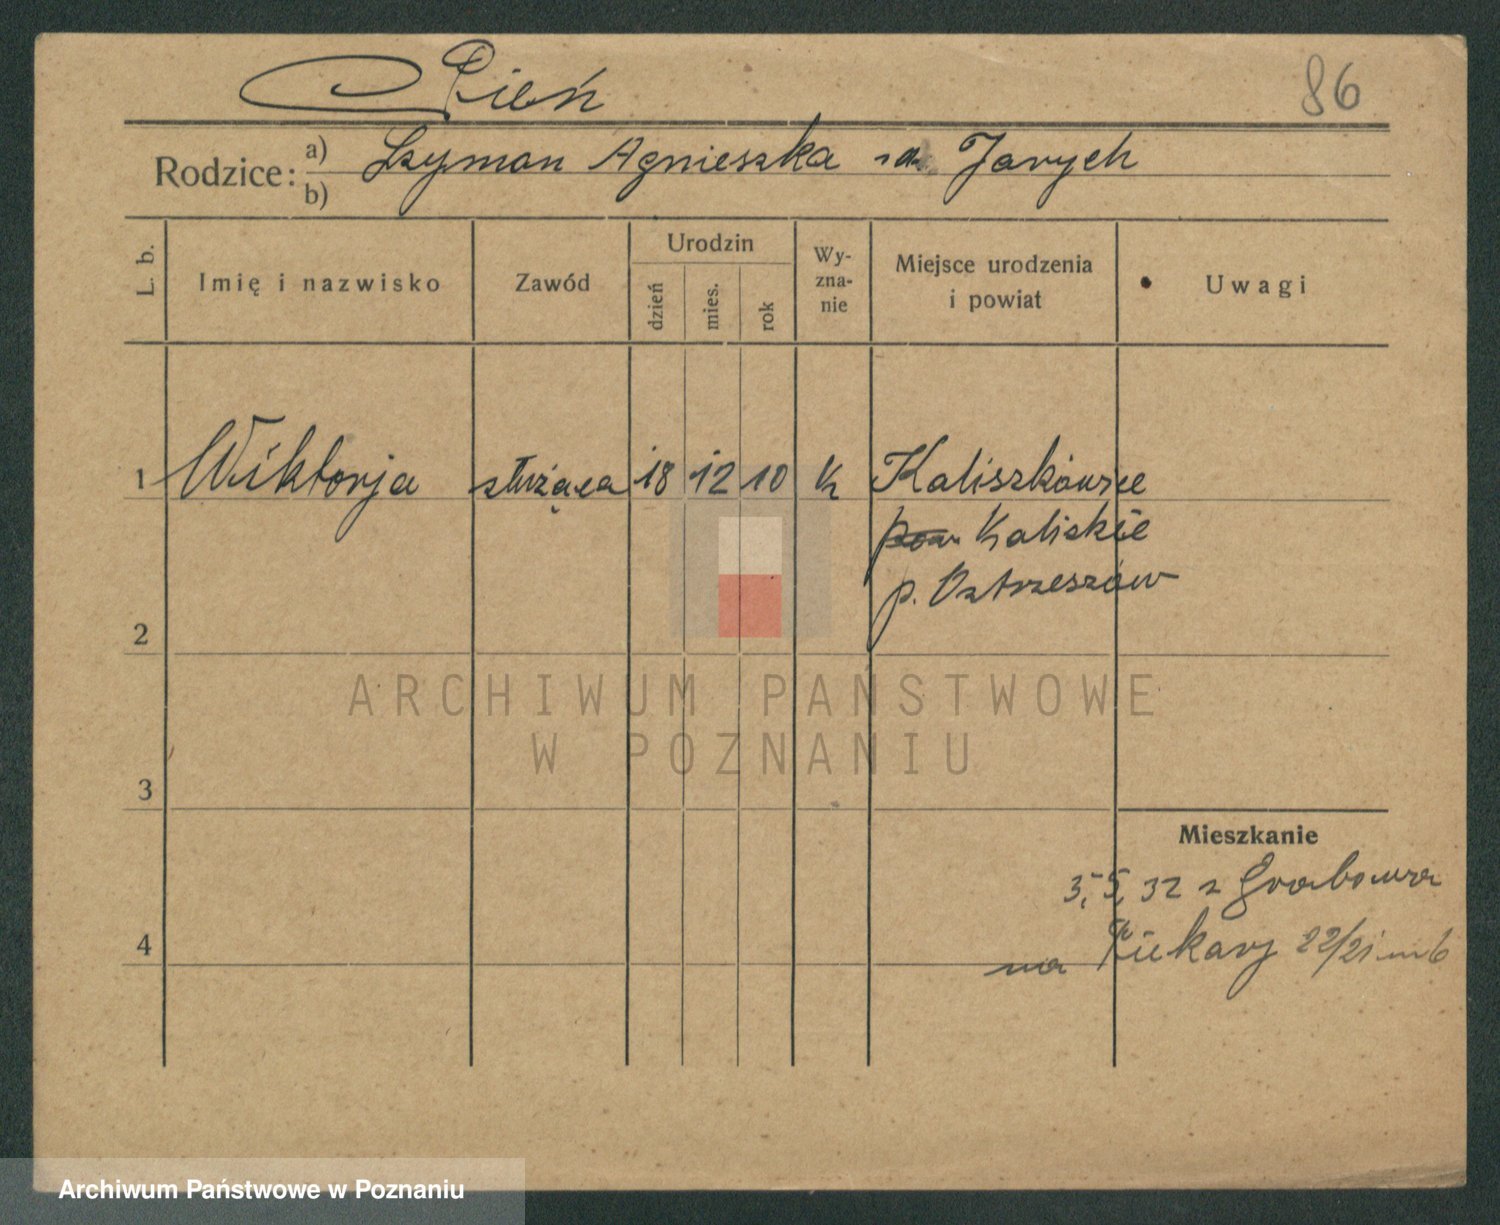 Pień
86
Rodzice: a) Szyman Agnieszka zd. Jarych
b)
L. b.
Imię i nazwisko
Zawód
Urodzin
dzień
mies.
rok
Wy-
zna-
nie
Miejsce urodzenia
i powiat
Uwagi
1 Wiktorja służąca 18 12 10 K Kaliszkowice
pow Kaliskie
p. Ostrzeszów
2
3
4
Mieszkanie
3,5,32 z Grabowa
na Piekary 22/21 m 6
ARCHIWUM PAŃSTWOWE
W POZNANIU
Archiwum Państwowe w Poznaniu